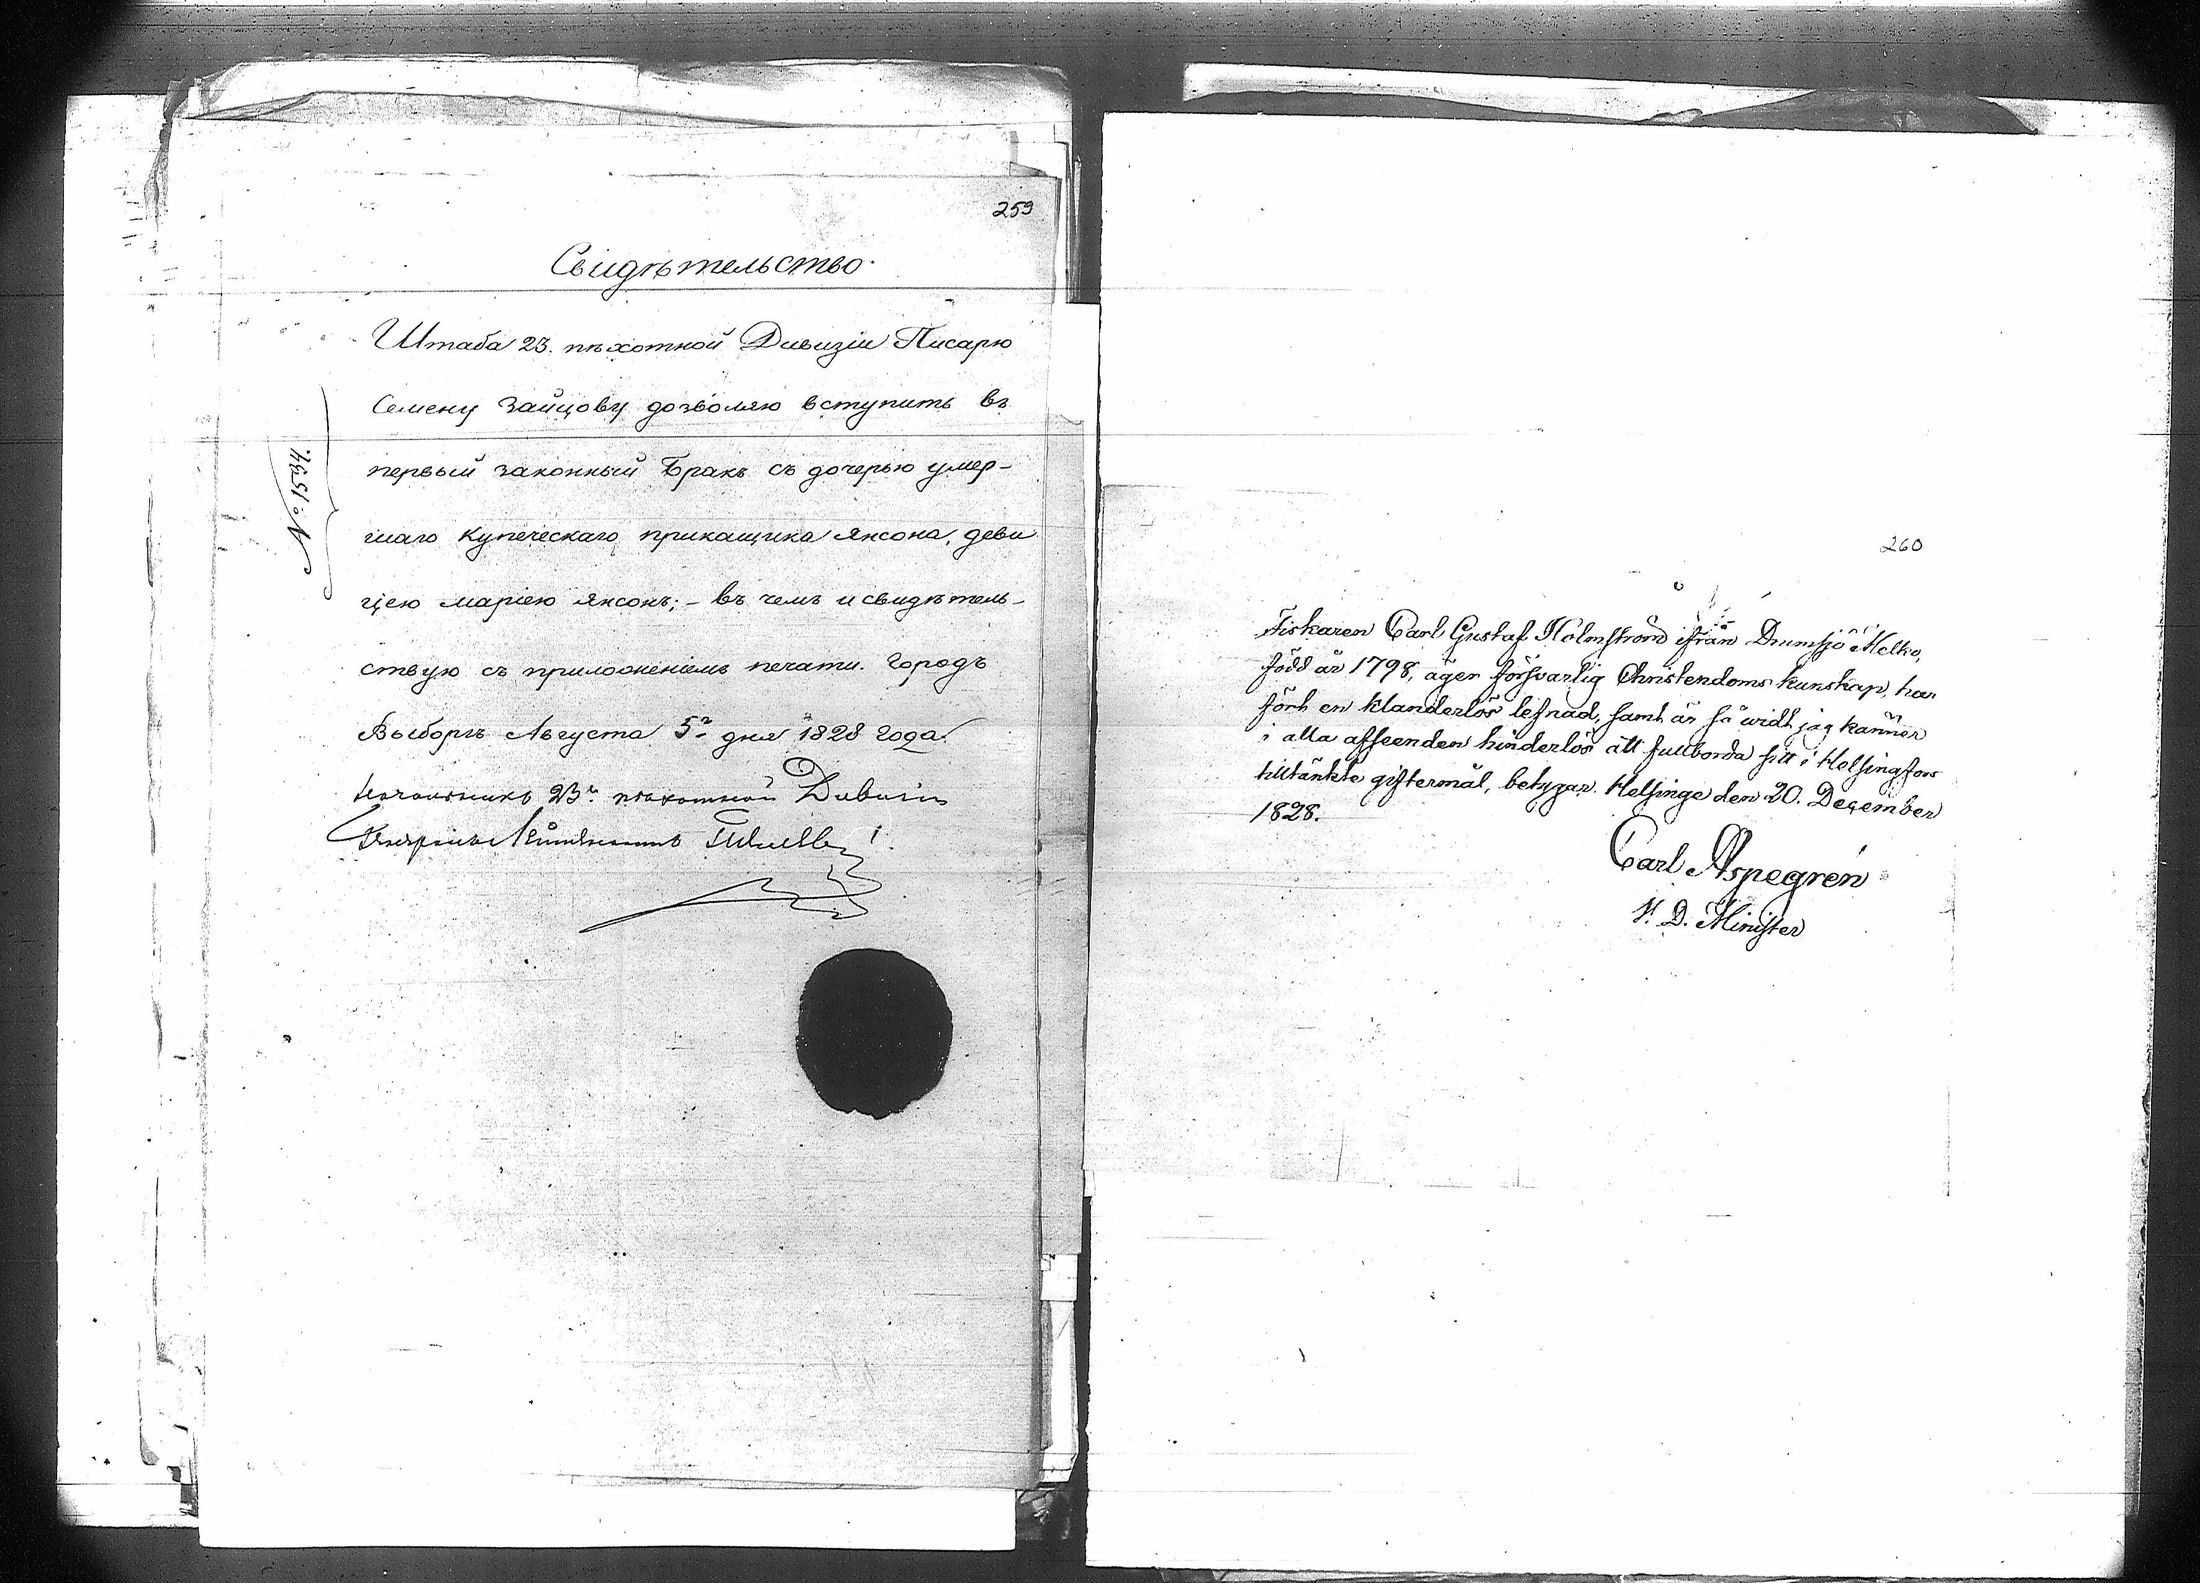 259
Свидѣтельство.
Штаба 23. пѣхотной Дивизіи Писарю
Семену Зайцову дозволяю вступить въ
первый законный Бракъ съ дочерью умер-
шаго Купеческаго прикащика Янсона, деви
цею Маріею Янсонъ; - въ чемъ и свидѣтель-
ствую съ приложеніемъ печати. Городъ
Выборгъ Августа 5го дня 1828 года.
Начальникъ 23й пѣхотной Дивизіи
Генералъ Лейтенантъ
№ 1534.
260
Fiskaren Carl Gustaf Holmström ifrån Drumsjö Melko,
född år 1798, äger försvarlig Christendoms kunskap, har
fört en klanderlös lefnad, samt är så widt jag känner
i alla afseenden hinderlös att fullborda sitt i Helsingfors
tilltänkte giftermål, betygar. Helsinge den 20. December
1828.
Carl Aspegrén
V. D. Minister